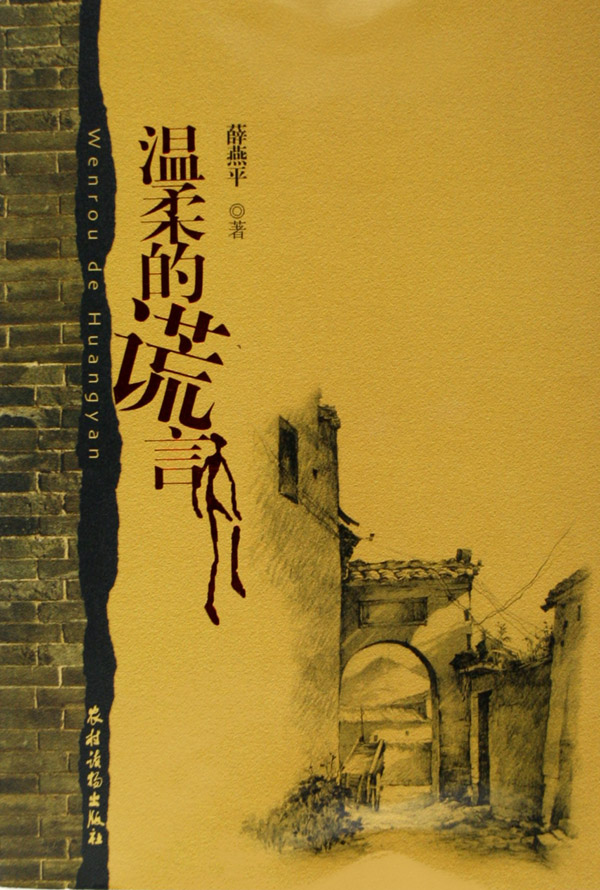 温柔的谎言
薛燕平 ◎著
Wenrou de Huangyan
农村读物出版社